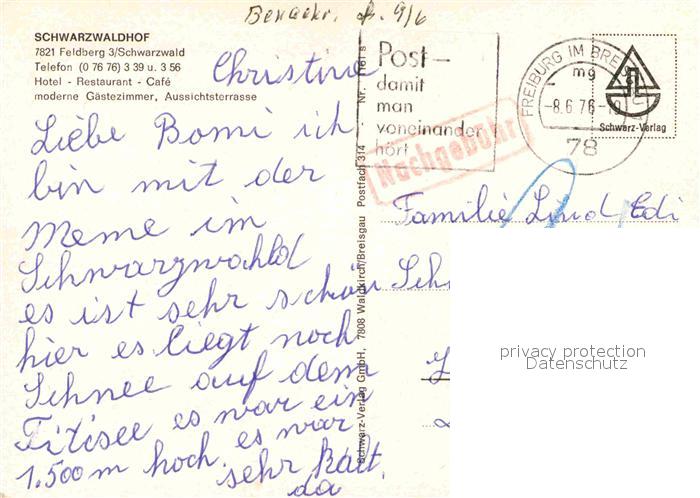 Benachr. d. 9/6
SCHWARZWALDHOF
7821 Feldberg 3/Schwarzwald
Telefon (0 76 76) 3 39 u. 3 56
Hotel - Restaurant - Café
moderne Gästezimmer, Aussichtsterrasse
Christine
Liebe Bomi ich
bin mit der
Meme im
Schwarzwahld
es ist sehr schön
hier es liegt noch
Schnee auf dem
Titisee es war ein
1.500 m hoch es war
sehr kalt
da
Schwarz-Verlag GmbH, 7808 Waldkirch/Breisgau Postfach 314
Post-
damit
man
voneinander
hört
Nachgebühr
FREIBURG IM BREISGAU
mg
-8.6.76-
78
Schwarz-Verlag
Familie Lind Edi
Sch
privacy protection
Datenschutz